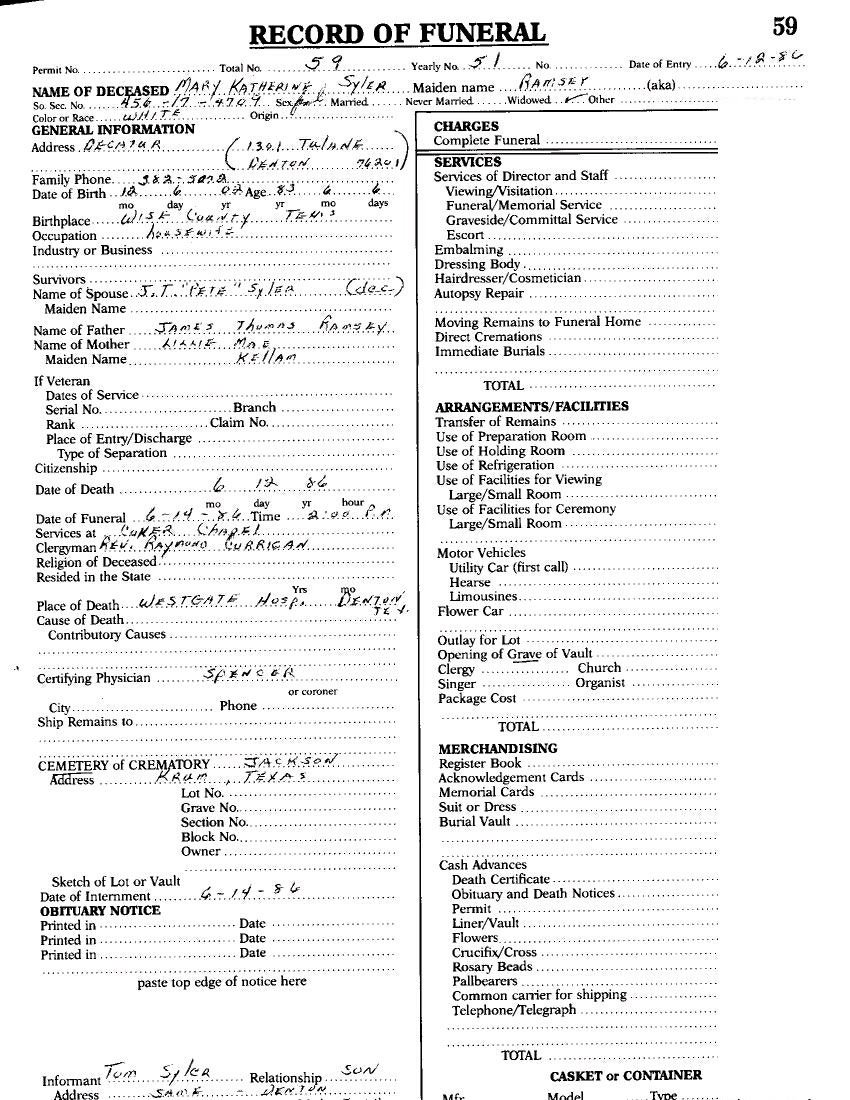 RECORD OF FUNERAL
59
Permit No. Total No. 59 Yearly No. 51 No. Date of Entry 6-12-86
NAME OF DECEASED MARY KATHERINE SYLER Maiden name RAMSEY (aka)
So. Sec. No. 456-17-4709 Sex Married Never Married Widowed ✓ Other
Color or Race WHITE Origin
GENERAL INFORMATION
Address DECATUR (1301 TULANE
DENTON 76201)
Family Phone 382-5072
Date of Birth 12 6 02 Age 83 6 6
mo day yr yr mo days
Birthplace WISE COUNTY TEXAS
Occupation HOUSEWIFE
Industry or Business
Survivors
Name of Spouse J.T. "PETE" SYLER (dec)
Maiden Name
Name of Father JAMES THOMAS RAMSEY
Name of Mother LILLIE MAE
Maiden Name KELLAM
If Veteran
Dates of Service
Serial No. Branch
Rank Claim No.
Place of Entry/Discharge
Type of Separation
Citizenship
Date of Death 6 12 86
mo day yr hour
Date of Funeral 6-14-86 Time 2:00 P.M
Services at COKER CHAPEL
Clergyman REV. RAYMOND CURRIGAN
Religion of Deceased
Resided in the State
Yrs mo
Place of Death WESTGATE HOSP. DENTON
TEX.
Cause of Death
Contributory Causes
Certifying Physician SPENCER
or coroner
City Phone
Ship Remains to
CEMETERY of CREMATORY JACKSON
Address KRUM, TEXAS
Lot No.
Grave No.
Section No.
Block No.
Owner
Sketch of Lot or Vault
Date of Internment 6-14-86
OBITUARY NOTICE
Printed in Date
Printed in Date
Printed in Date
paste top edge of notice here
Informant TOM SYLER Relationship SON
Address SAME - DENTON
CHARGES
Complete Funeral
SERVICES
Services of Director and Staff
Viewing/Visitation
Funeral/Memorial Service
Graveside/Committal Service
Escort
Embalming
Dressing Body
Hairdresser/Cosmetician
Autopsy Repair
Moving Remains to Funeral Home
Direct Cremations
Immediate Burials
TOTAL
ARRANGEMENTS/FACILITIES
Transfer of Remains
Use of Preparation Room
Use of Holding Room
Use of Refrigeration
Use of Facilities for Viewing
Large/Small Room
Use of Facilities for Ceremony
Large/Small Room
Motor Vehicles
Utility Car (first call)
Hearse
Limousines
Flower Car
Outlay for Lot
Opening of Grave of Vault
Clergy Church
Singer Organist
Package Cost
TOTAL
MERCHANDISING
Register Book
Acknowledgement Cards
Memorial Cards
Suit or Dress
Burial Vault
Cash Advances
Death Certificate
Obituary and Death Notices
Permit
Liner/Vault
Flowers
Crucifix/Cross
Rosary Beads
Pallbearers
Common carrier for shipping
Telephone/Telegraph
TOTAL
CASKET or CONTAINER
Mfr. Model Type